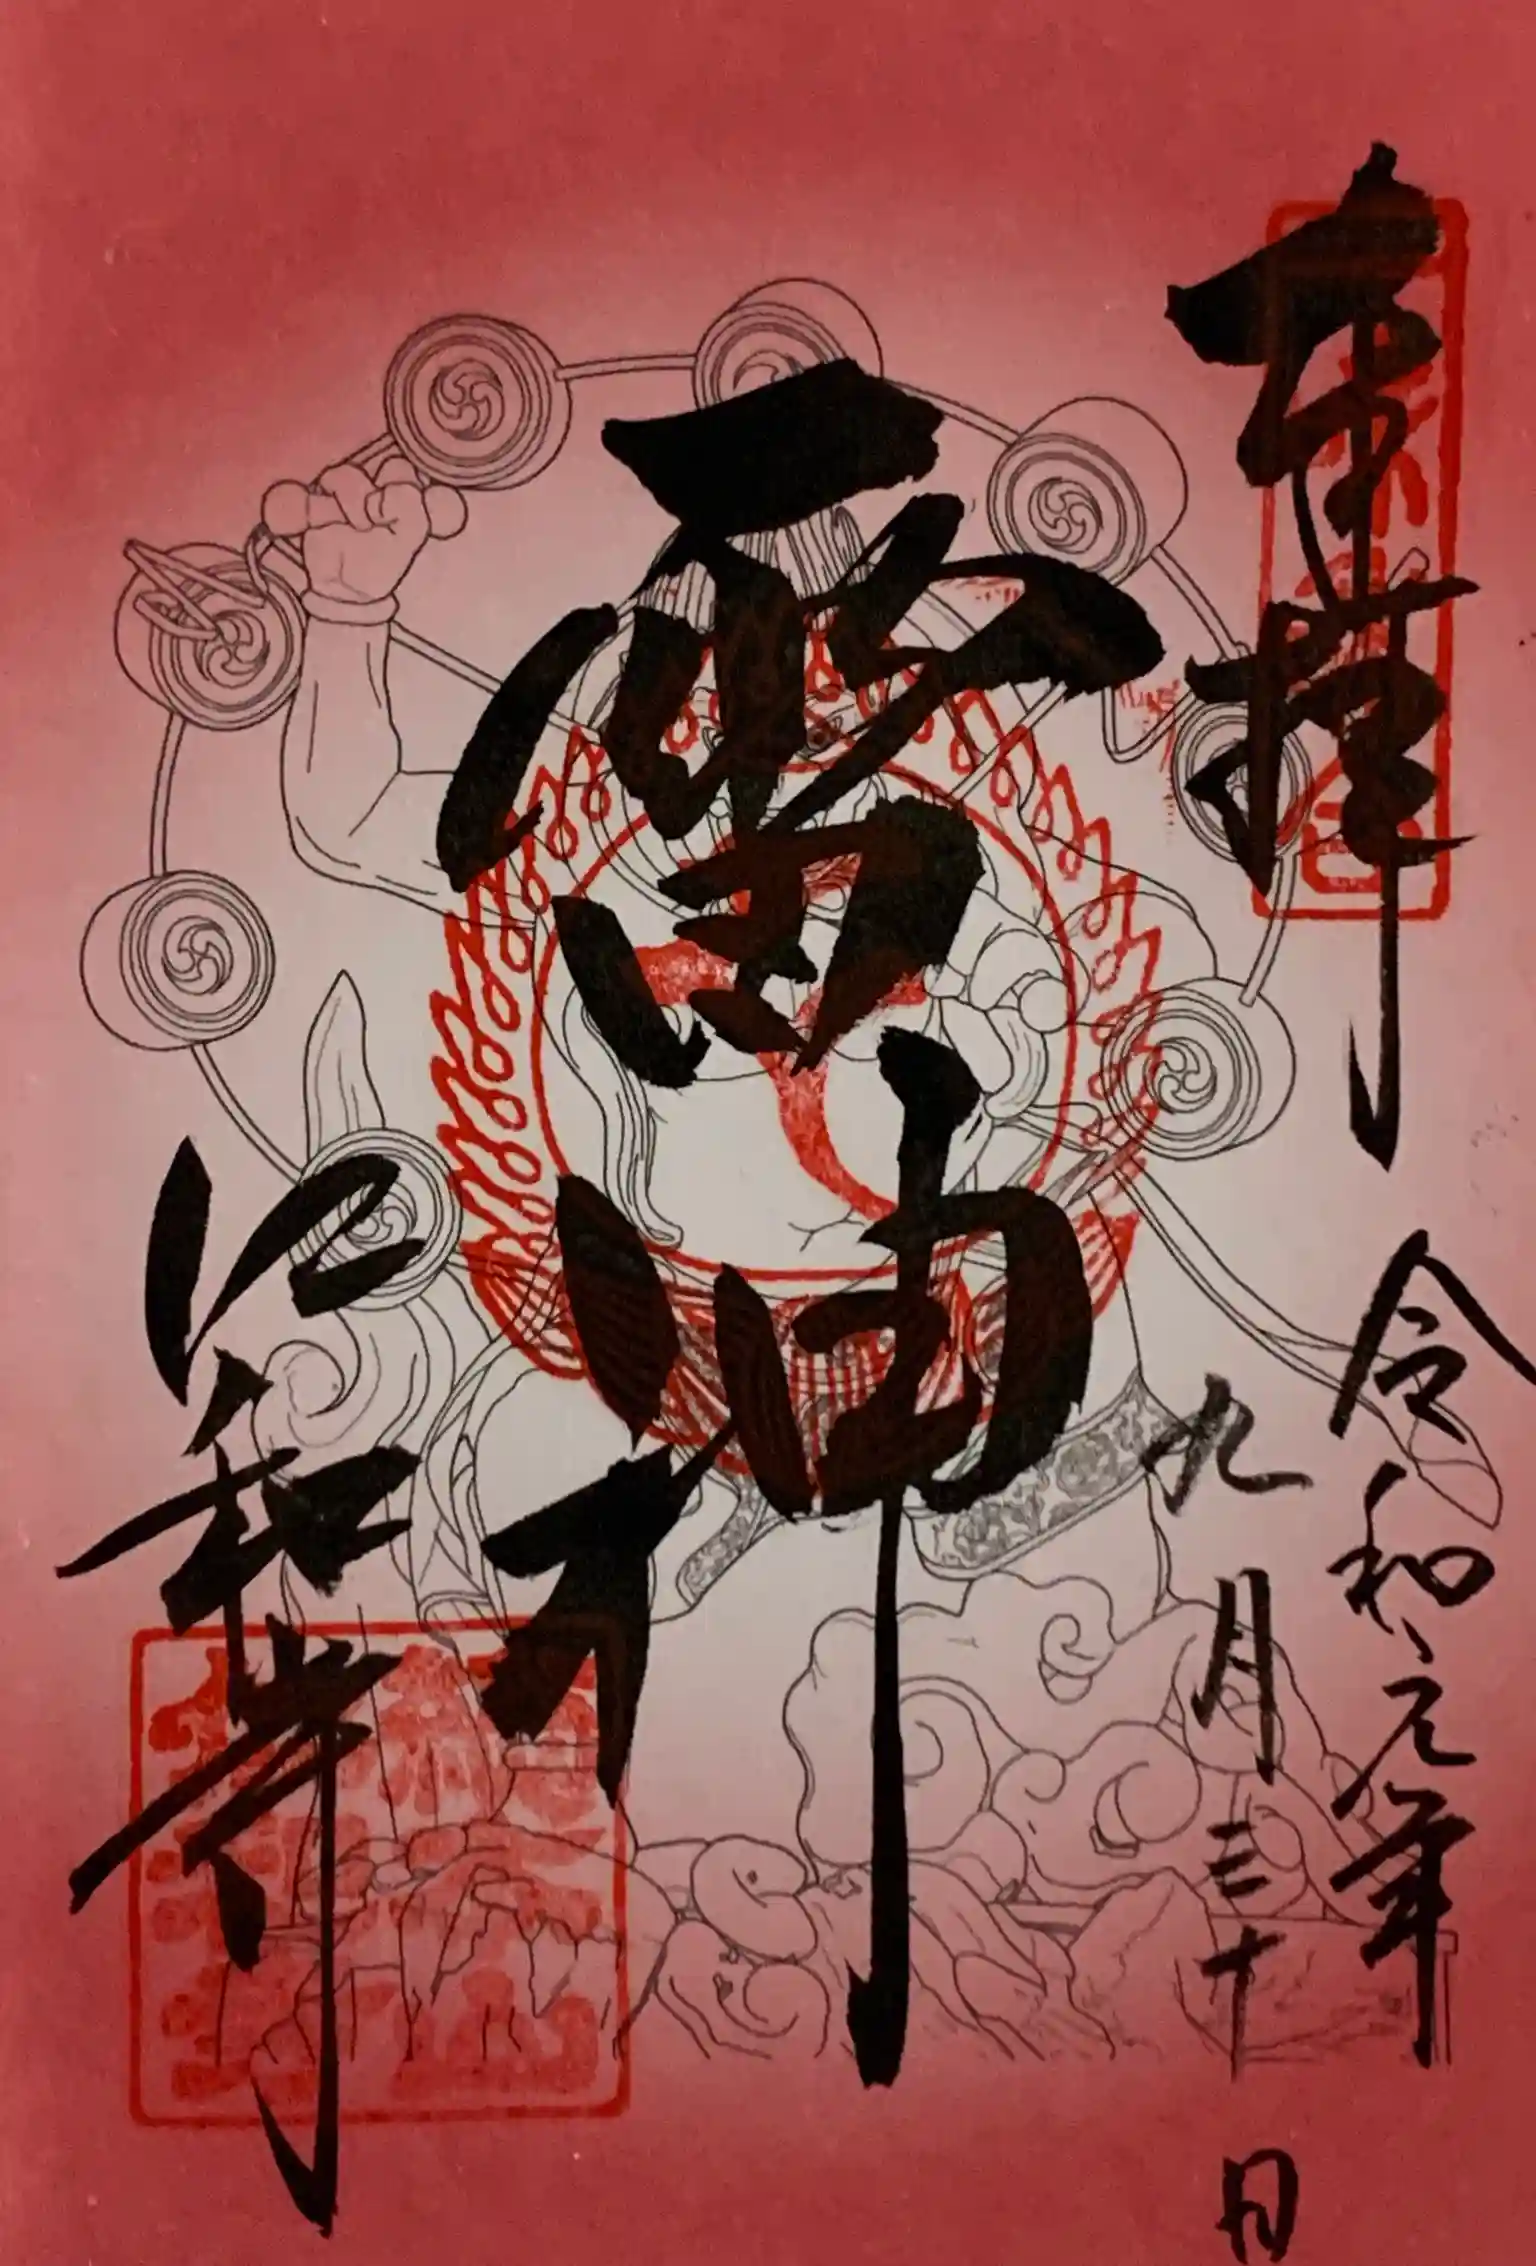 奉拝
令和元年
九月三十日
雷神
仁和寺